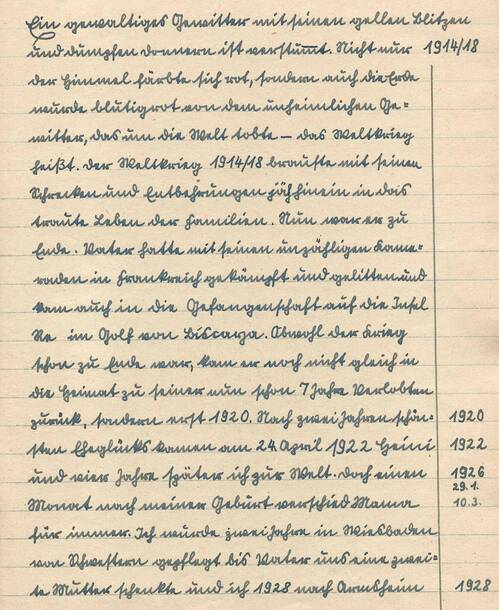 Ein gewaltiges Gewitter mit seinen gellen Blitzen
und dumpfen donnern ist verstummt. Nicht nur 1914/18
der Himmel färbte sich rot, sondern auch die Erde
wurde blutigrot von dem unheimlichen Ge-
witter, das um die Welt tobte – das Weltkrieg
heißt. Der Weltkrieg 1914/18 brauste mit seinen
Schrecken und Entbehrungen jäh hinein in das
traute Leben der Familien. Nun war er zu
Ende. Vater hatte mit seinen unzähligen Kame-
raden in Frankreich gekämpft und gelitten und
kam auch in die Gefangenschaft auf die Insel
Re im Golf von Biscaya. Obwohl der Krieg
schon zu Ende war, kam er noch nicht gleich in
die Heimat zu seiner nun schon 7 Jahre Verlobten
zurück, sondern erst 1920. Nach zwei Jahren schön- 1920
sten Eheglücks kamen am 24. April 1922 Heini 1922
und vier Jahre später ich zur Welt. Doch einen 1926
29.1.
Monat nach meiner Geburt verschied Mama 10.3.
für immer. Ich wurde zwei Jahre in Wiesbaden
von Schwestern gepflegt bis Vater uns eine zwei-
te Mutter schenkte und ich 1928 nach Armsheim 1928